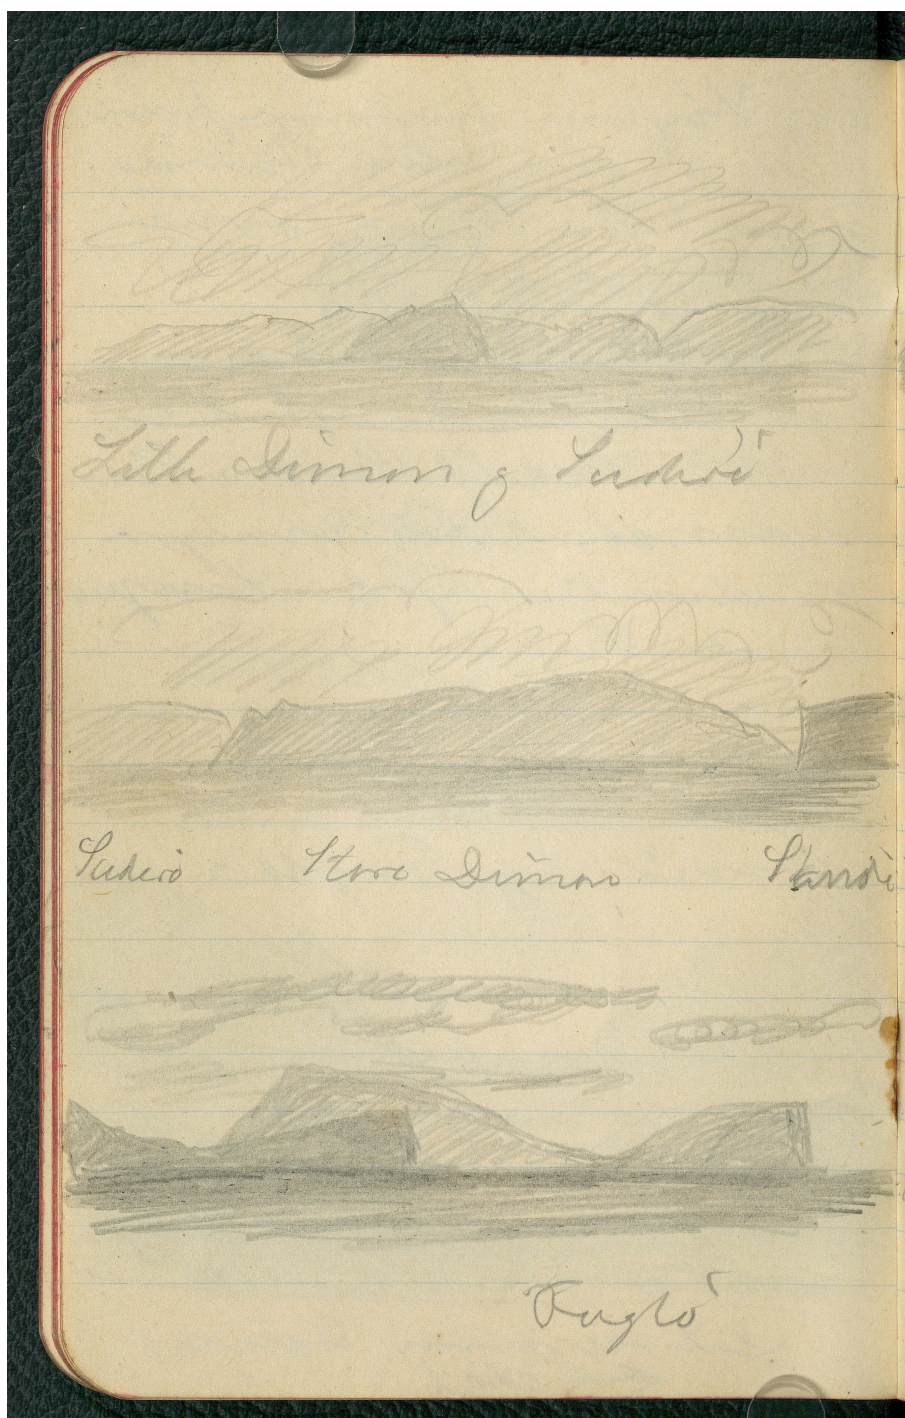 Lille Dimon g Suderö
Suderö Store Dimon Sandö
Fuglö